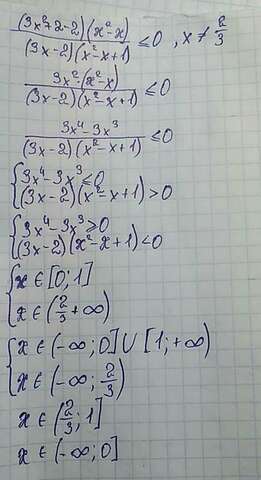 (3x²+2-2)(x²-x) / (3x-2)(x²-x+1) ≤0 , x≠ 2/3
3x²·(x²-x) / (3x-2)(x²-x+1) ≤0
3x⁴-3x³ / (3x-2)(x²-x+1) ≤0
{3x⁴-3x³≤0
(3x-2)(x²-x+1)>0
{3x⁴-3x³≥0
(3x-2)(x²-x+1)<0
{x∈[0;1]
x∈(2/3+∞)
{x∈(-∞;0]∪[1;+∞)
x∈(-∞;2/3)
x∈(2/3;1]
x∈(-∞;0]